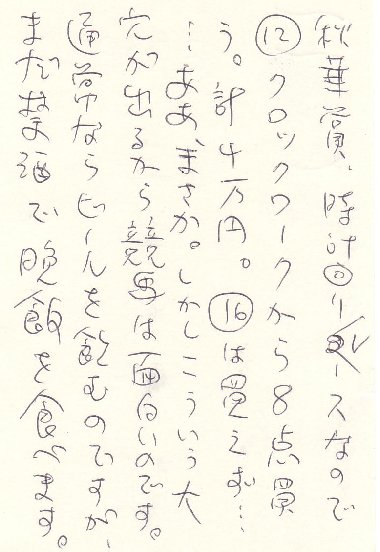 秋華賞、時計回りコースなので
⑫クロックワークから8点買
う。計4万円。⑯は買えず…
…ああ、まさか。しかしこういう大
穴が出るから競馬は面白いのです。
通常ならビールを飲むのですが、
まだ禁酒で晩飯を食べます。